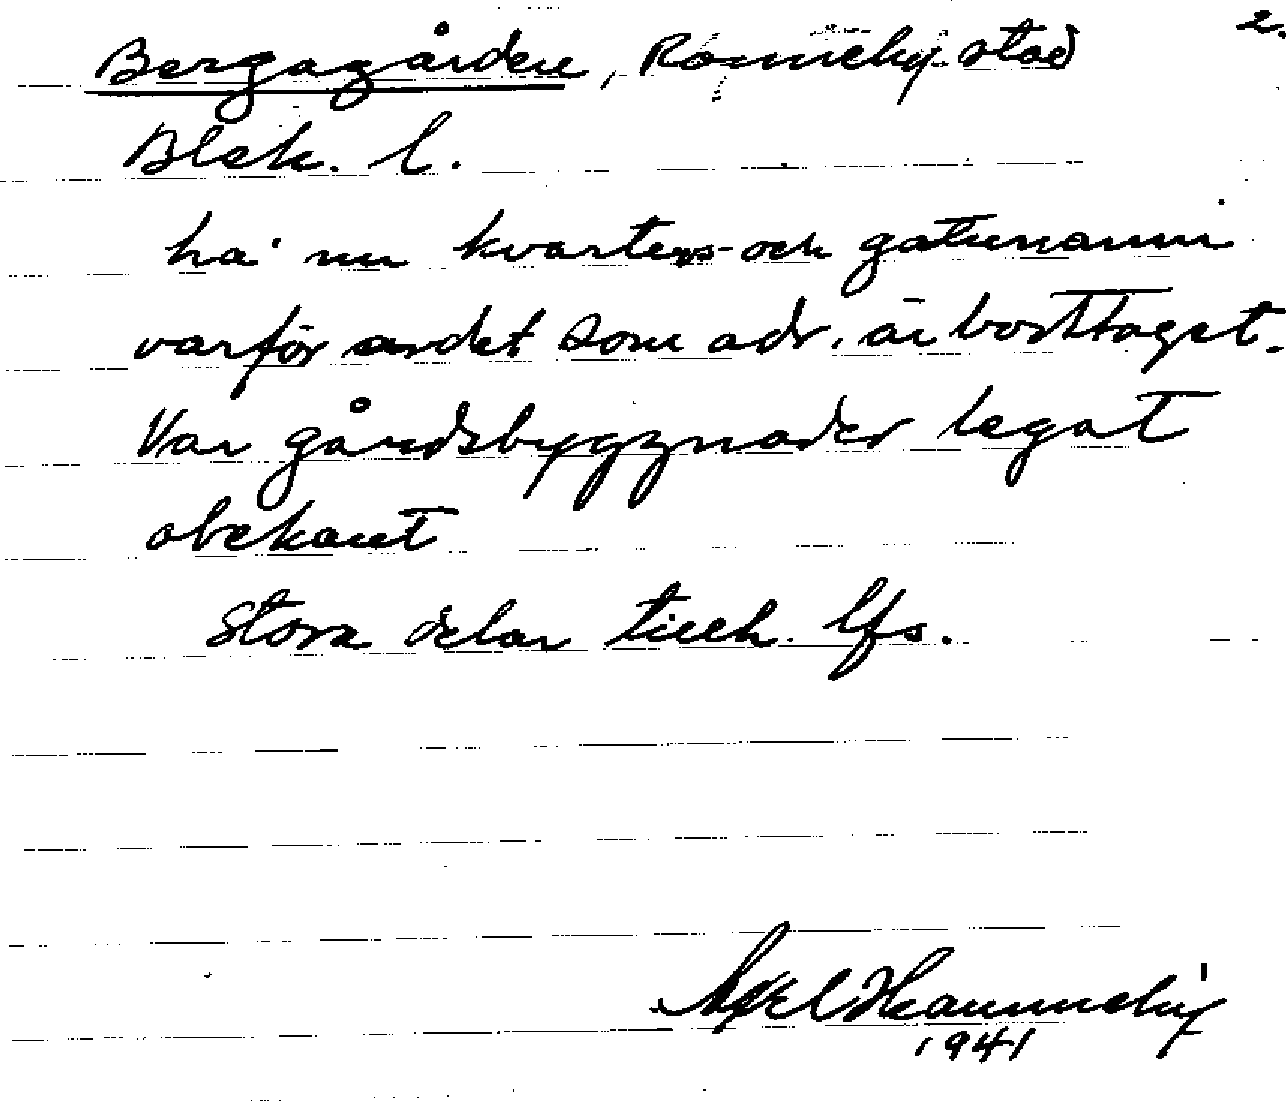 2.
Bergagården, Ronneby stad
Blek. l.
ha nu kvarters- och gatunamn
varför ordet som adr. är borttaget.
Var gårdsbyggnader legat
obekant
Stora delar tillh. lfs.
Axel
1941